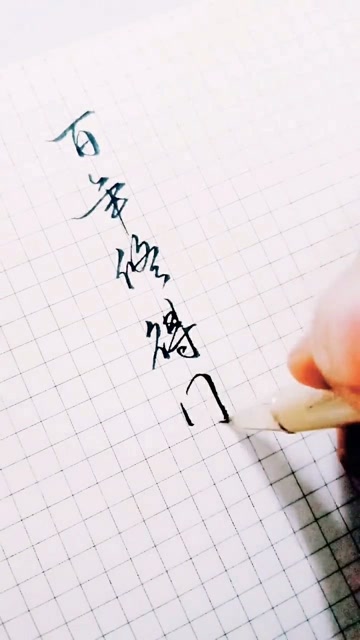 百年修得